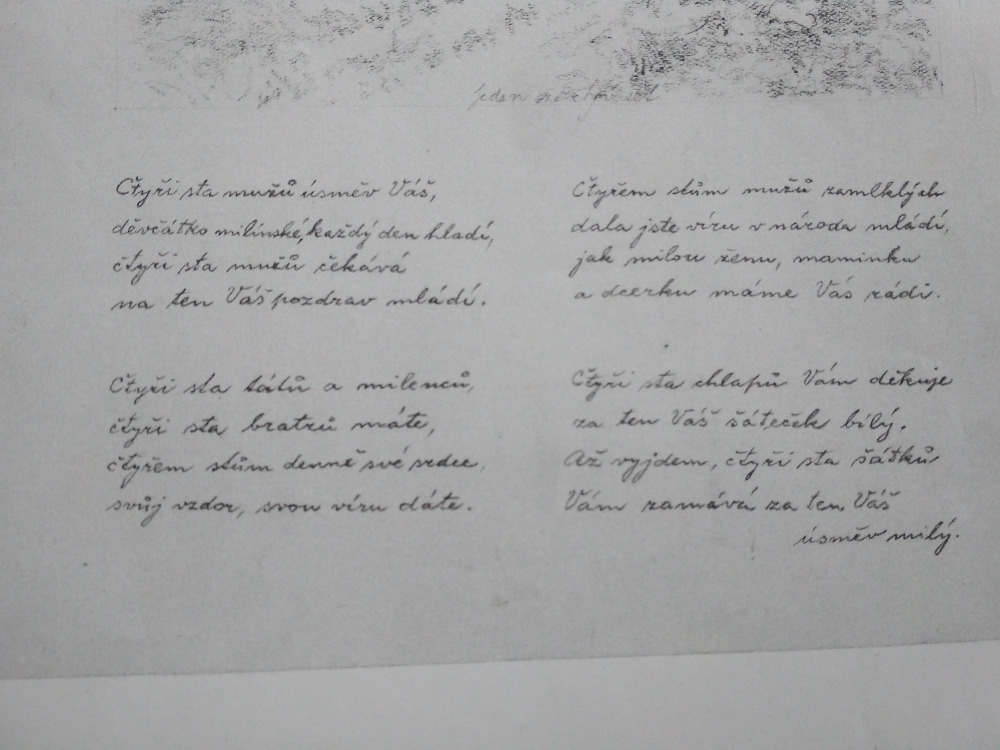 Jedan ze čtyř set
Čtyři sta mužů úsměv Váš,
děvčátko milínské, každý den hladí,
čtyři sta mužů čekává
na ten Váš pozdrav mládí.
Čtyři sta tátů a milenců,
čtyři sta bratrů máte,
čtyřem stům denně své srdce,
svůj vzdor, svou víru dáte.
Čtyřem stům mužů zamlklých
dala jste víru v národa mládí,
jak milou ženu, maminku
a dcerku máme Vás rádi.
Čtyři sta chlapů Vám děkuje
za ten Váš šáteček bílý.
Až vyjdem, čtyři sta šátků
Vám zamává za ten Váš
úsměv milý.